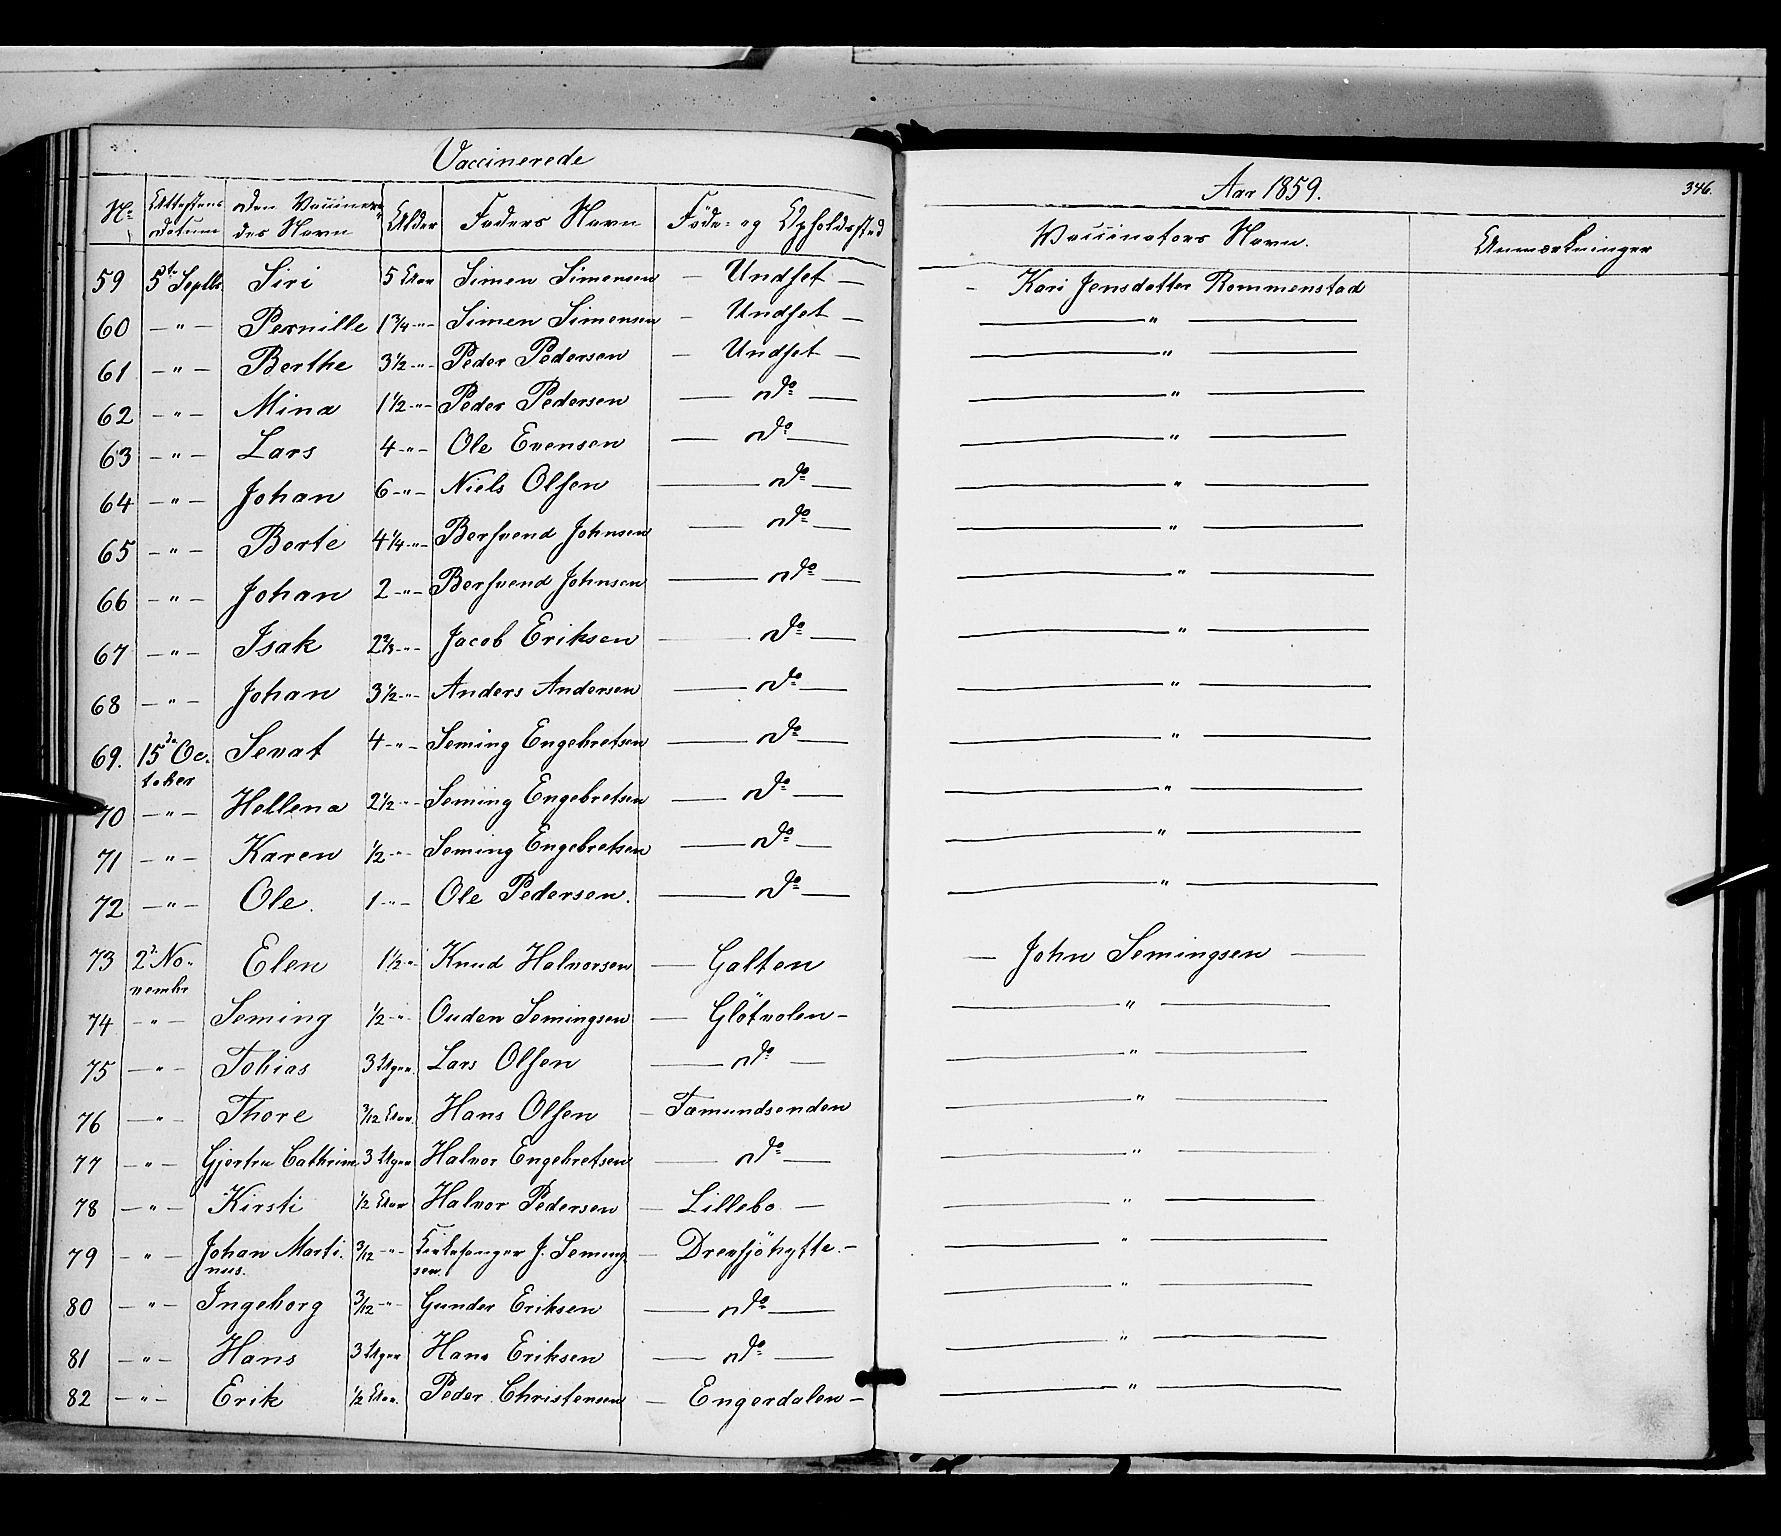 Vaccinerede
Aar 1859.
346.
No Attestens Datum Den Vaccinere- des Navn Alder Faders Navn Føde- og Opholdssted Vaccinators Navn. Anmærkninger
59 5te Septbr. Siri 5 Aar Simen Simensen — Undset — - Kari Jensdatter Rommenstad
60 — " — Pernille 1 3/4 -"- Simen Simensen - Undset — — " —
61 — " — Berthe 3 1/2 -"- Peder Pedersen — Undset — — " —
62 — " — Mina 1 1/2 -"- Peder Pedersen — do — — " —
63 — " — Lars 4 -"- Ole Evensen — do — — " —
64 — " — Johan 6 -"- Niels Olsen — do — — " —
65 — " — Berte 4 1/4 -"- Bersvend Johnsen — do — — " —
66 — " — Johan 2 -"- Bersvend Johnsen — do — — " —
67 — " — Isak 2 2/3 -"- Jacob Eriksen — do — — " —
68 — " — Johan 3 1/2 -"- Anders Andersen — do — — " —
69. 15de Oc- Senat 4 -"- Seming Engebretsen — do — — " —
tober
70 — " — Hellena 2 1/2 -"- Seming Engebretsen — do — — " —
71 — " — Karen 1/2 -"- Seming Engebretsen — do — — " —
72 — " — Ole. 1 -"- Ole Pedersen. — do — — " —
73 2d No- Elen 1 1/2 -"- Knud Halvorsen — Galten — John Semingsen —
vembr
74 - " - Seming 1/2 -"- Ouden Semingsen — Glötvolen - — " —
75 — " — Tobias 3 Uger Lars Olsen — do — — " —
76 — " — Thore 3/12 Aar Hans Olsen — Fæmundsenden — " —
77 — " — Gjertru Cathrine 3 Uger Halvor Engebretsen — do — — " —
78 — " — Kirsti 1/2 Aar Halvor Pedersen — Lillebo — — " —
79 — " — Johan Marti- 3/12 -"- Kirkesanger J. Seming- — Drevsjöhytte. - — " —
nus. sen.
80 — " — Ingeborg 3/12 -"- Gunder Eriksen — do — — " —
81 — " — Hans 3 Uger Hans Eriksen — do — — " —
82 — " — Erik 1/2 Aar. Peder Christensen — Engerdalen — — " —